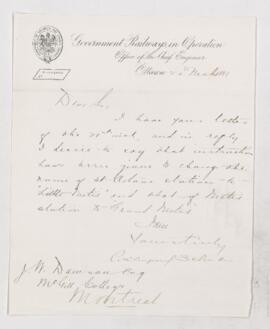 Government Railways in Operation
Office of the Chief Engineer
Ottawa
Dear Sir,
I have your letter
of the inst, and in reply
I desire to say that instructions
have been given to change the
name of St Octave station to
"Little Metis" and that of Metis
station to Grand Metis
I am
Yours truly
J. W. Dawson Esq
McGill College
Montreal